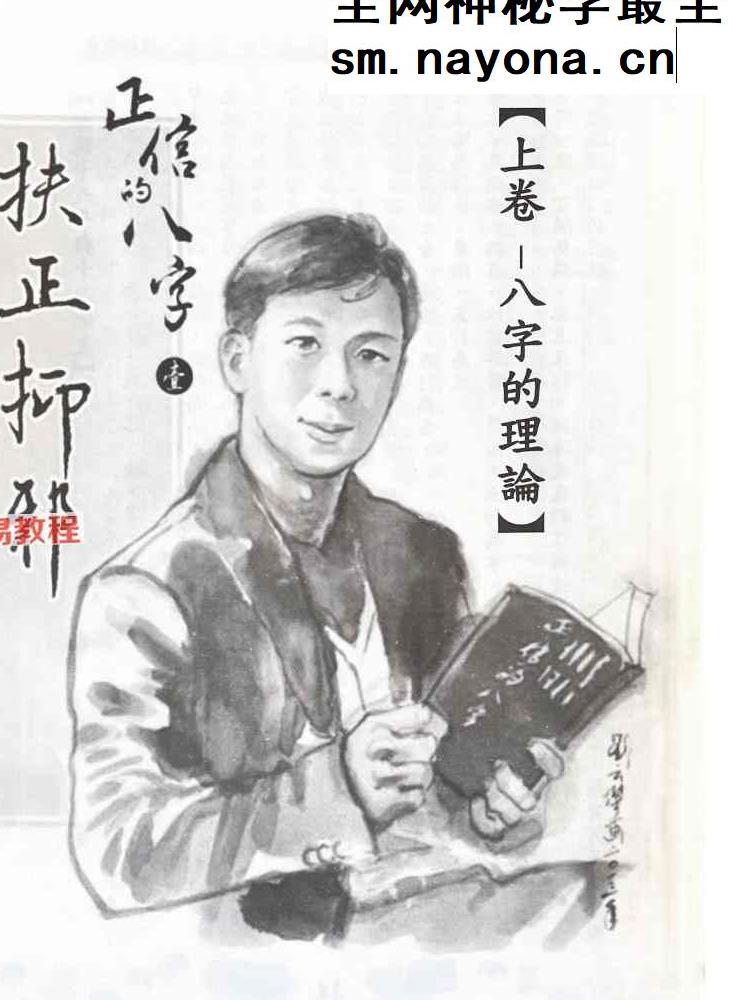 全网神秘学最全
sm.nayona.cn
正信的八字
壹
【上卷－八字的理論】
扶正抑邪
易教程
正信的八字